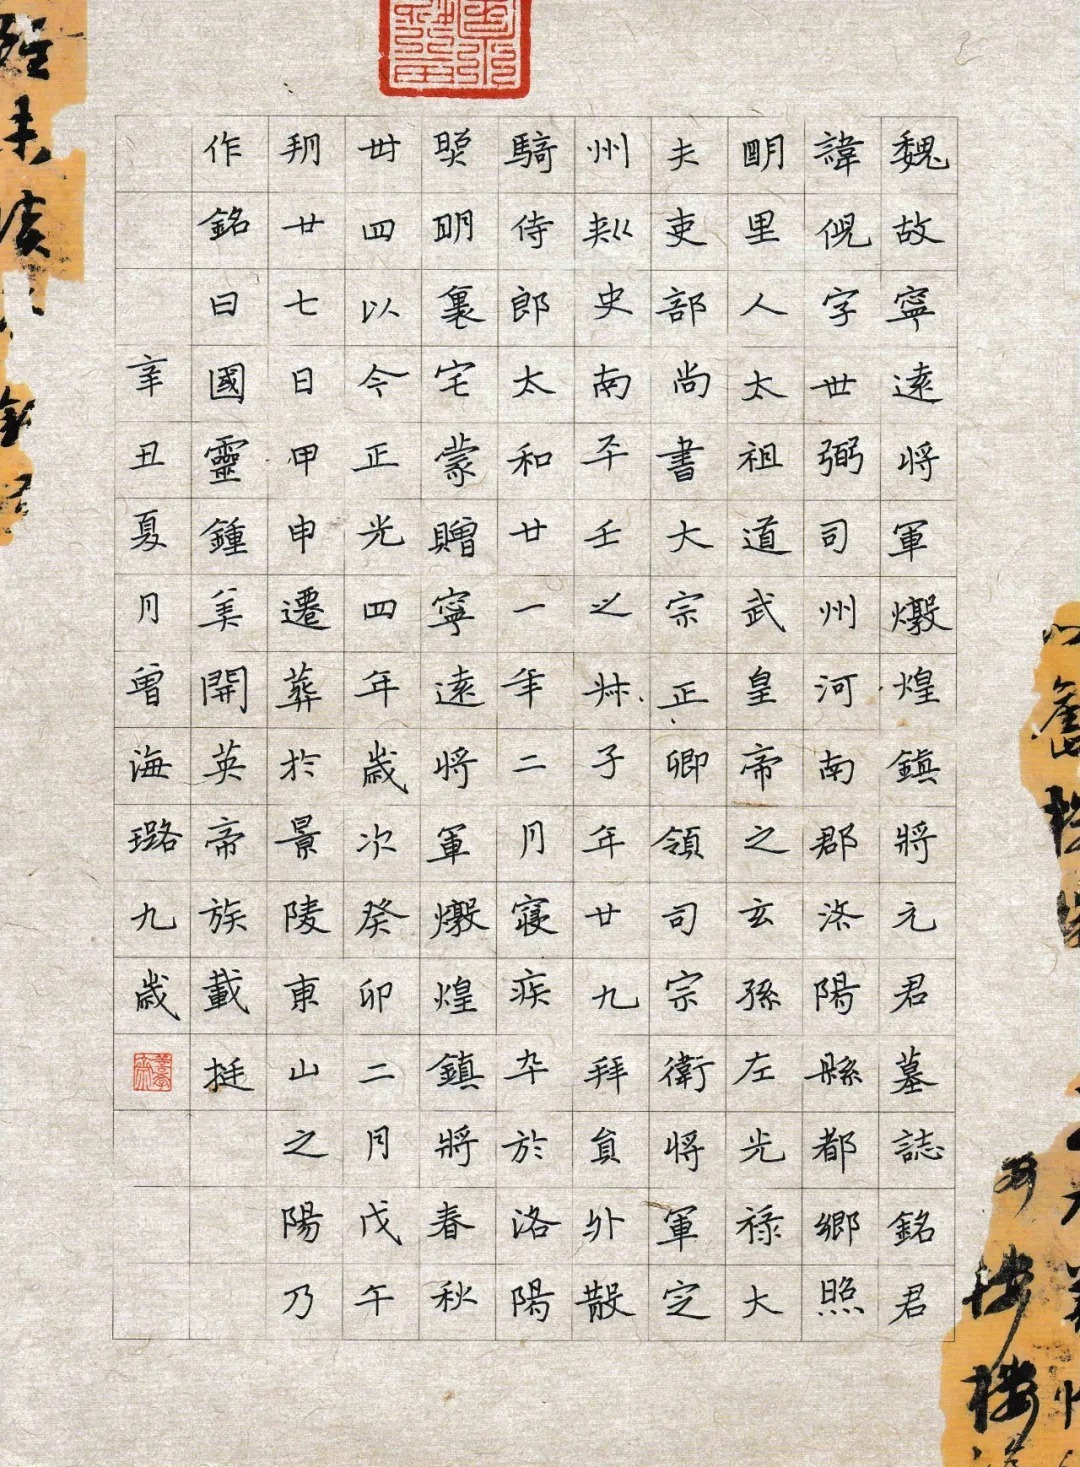 魏故寧遠將軍燉煌鎮將元君墓誌銘君
諱倪字世弼司州河南郡洛陽縣都鄉照
明里人太祖道武皇帝之玄孫左光祿大
夫吏部尚書大宗正卿領司宗衛將軍定
州刾史南平王之叔子年廿九拜員外散
騎侍郎太和廿一年二月寢疾卒於洛陽
照明里宅蒙贈寧遠將軍燉煌鎮將春秋
卅四以今正光四年歲次癸卯二月戊午
朔廿七日甲申遷葬於景陵東山之陽乃
作銘曰國靈鍾美開英帝族載挺
辛丑夏月曾海璐九歲